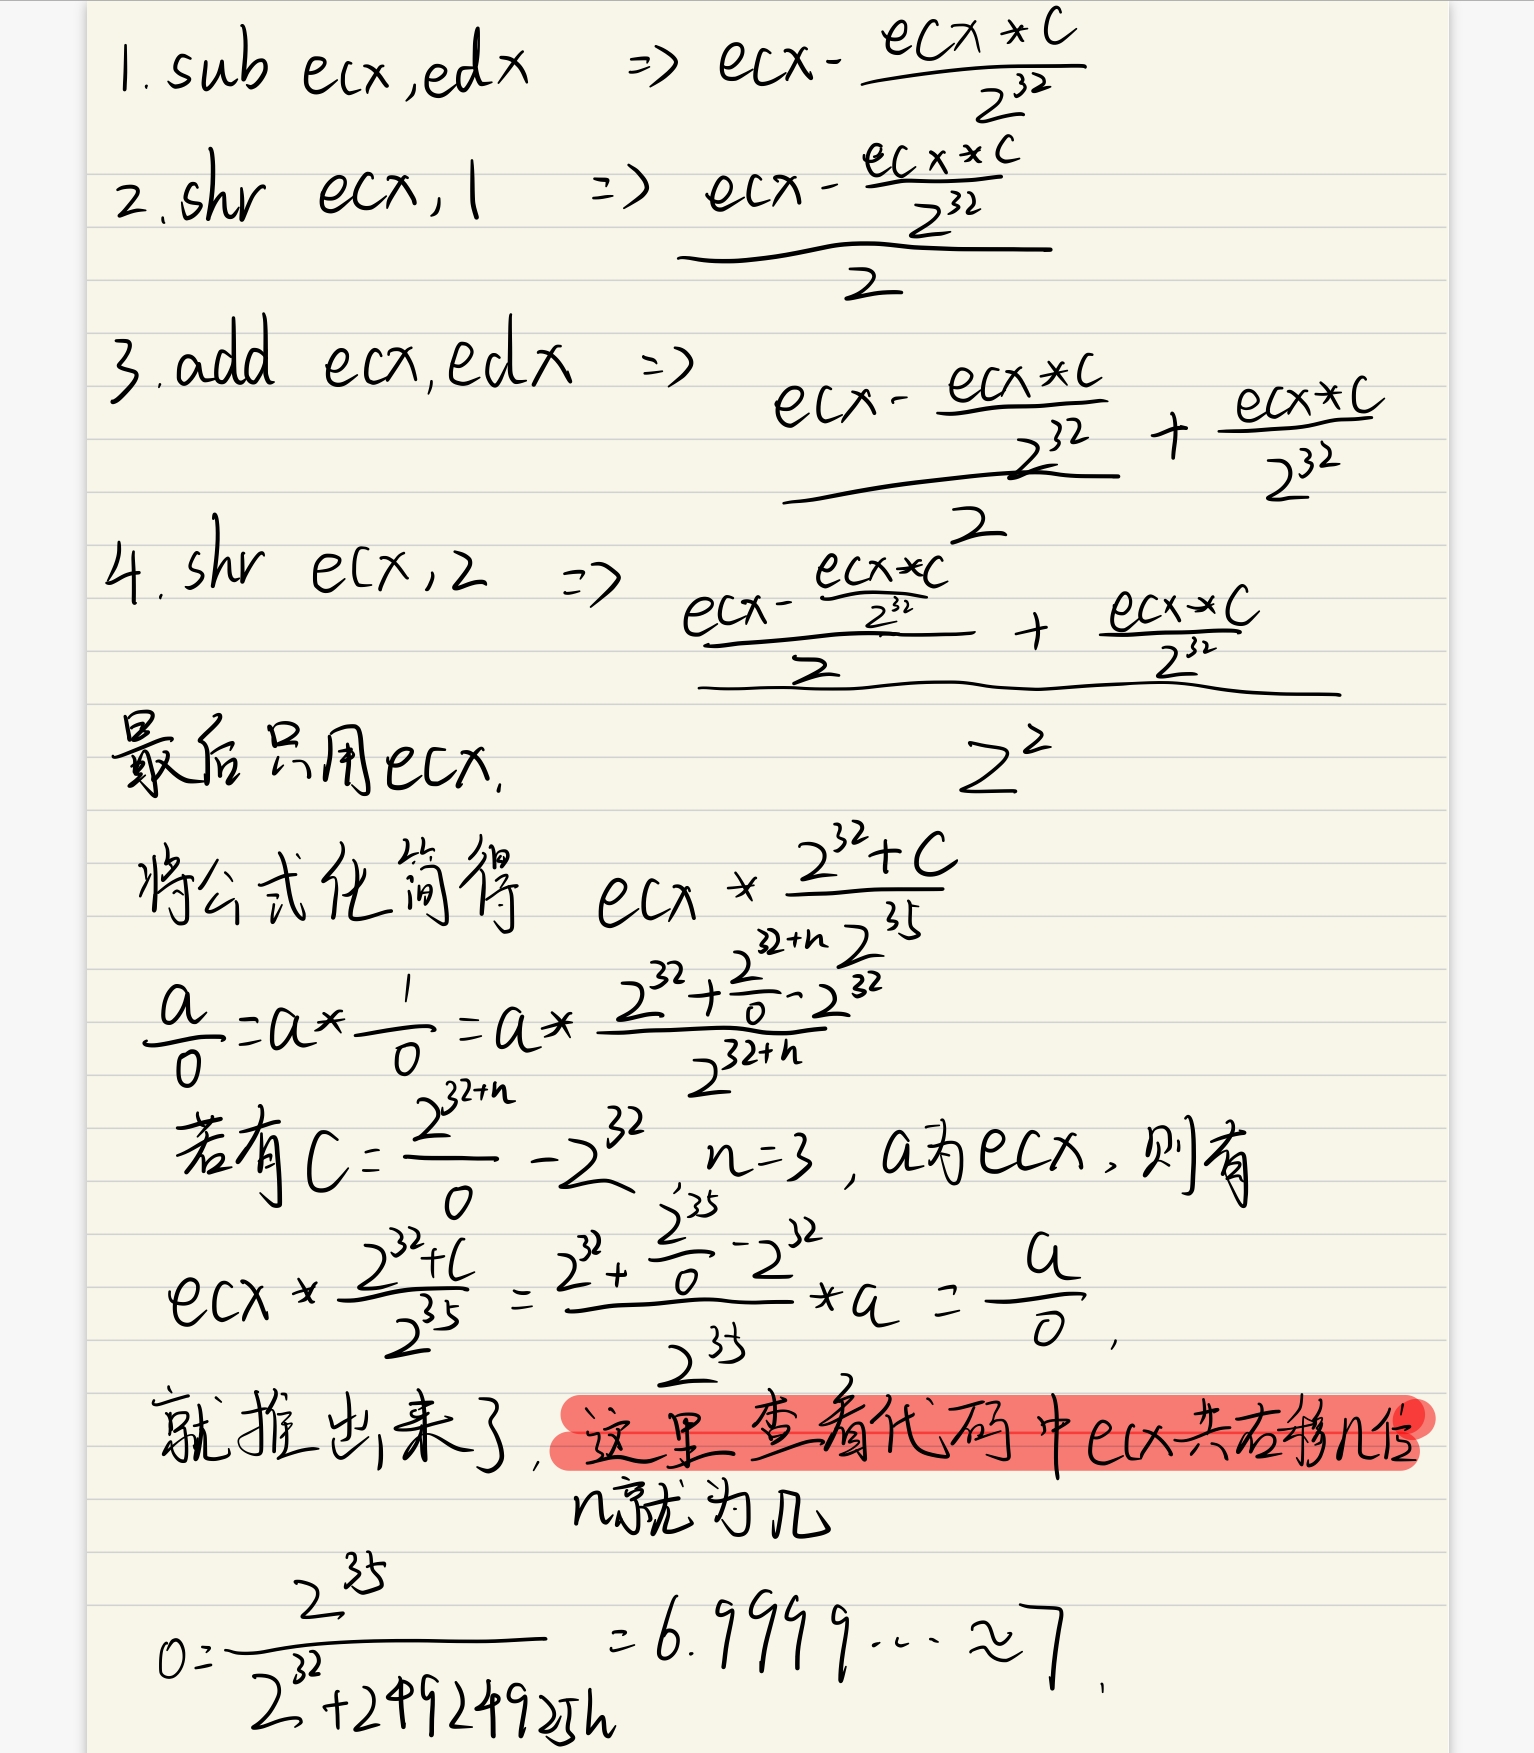 1. sub ecx,edx => ecx - \frac{ecx*C}{2^{32}}
2. shr ecx,1 => \frac{ecx - \frac{ecx*C}{2^{32}}}{2}
3. add ecx,edx => \frac{ecx - \frac{ecx*C}{2^{32}}}{2} + \frac{ecx*C}{2^{32}}
4. shr ecx,2 => \frac{\frac{ecx - \frac{ecx*C}{2^{32}}}{2} + \frac{ecx*C}{2^{32}}}{2^2}
最后只用ecx.
将公式化简得 ecx * \frac{2^{32}+C}{2^{35}}
\frac{a}{o} = a * \frac{1}{o} = a * \frac{2^{32} + \frac{2^{32+n}}{o} - 2^{32}}{2^{32+n}}
若有 C = \frac{2^{32+n}}{o} - 2^{32}, n=3, a为ecx, 则有
ecx * \frac{2^{32}+C}{2^{35}} = \frac{2^{32} + \frac{2^{35}}{o} - 2^{32}}{2^{35}} * a = \frac{a}{o},
就推出来了, 这里查看代码中ecx共右移n位
n就为几
o = \frac{2^{35}}{2^{32}+24924925h} = 6.9999... ≈ 7.